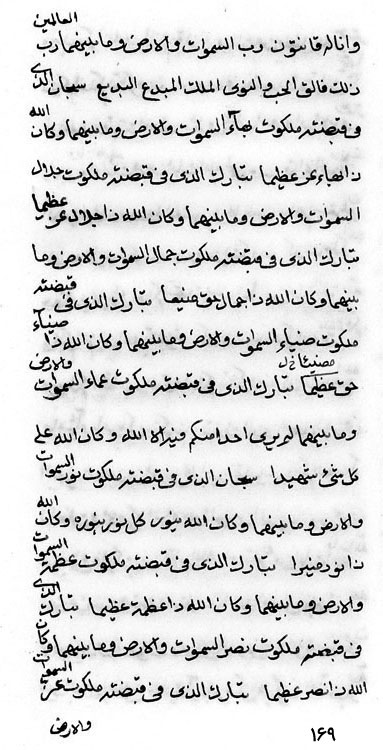 وانا له قانتون رب السموات والارض وما بينهما رب العالمين
ذلك فالق الحب والنوى الملك المبدع البديع سبحان الذي
في قبضته ملكوت بهاء السموات والارض وما بينهما وكان الله
ذا بهاء عز عظيما تبارك الذى فى قبضته ملكوت جلال
السموات والارض وما بينهما وكان الله ذا جلال عز عظيما
تبارك الذى فى قبضته ملكوت جمال السموات والارض وما
بينهما وكان الله ذا جمال حق منيعا تبارك الذى فى قبضته
ملكوت ضياء السموات والارض وما بينهما وكان الله ذا ضياء
حق عظيما تبارك الذى فى قبضته ملكوت عماء السموات والارض
وما بينهما احدا منكم الا الله وكان الله على
كل شئ شهيدا سبحان الذى فى قبضته ملكوت نور السموات
والارض وما بينهما وكان الله ينور كل نور بنوره وكان الله
ذا نور منيرا تبارك الذى فى قبضته ملكوت عظمة السموات
والارض وما بينهما وكان الله ذا عظمة عظيما تبارك الذي
فى قبضته ملكوت نصر السموات والارض وما بينهما وكان
الله ذا نصر عظيما تبارك الذى فى قبضته ملكوت عز السموات
والارض
١٦٩